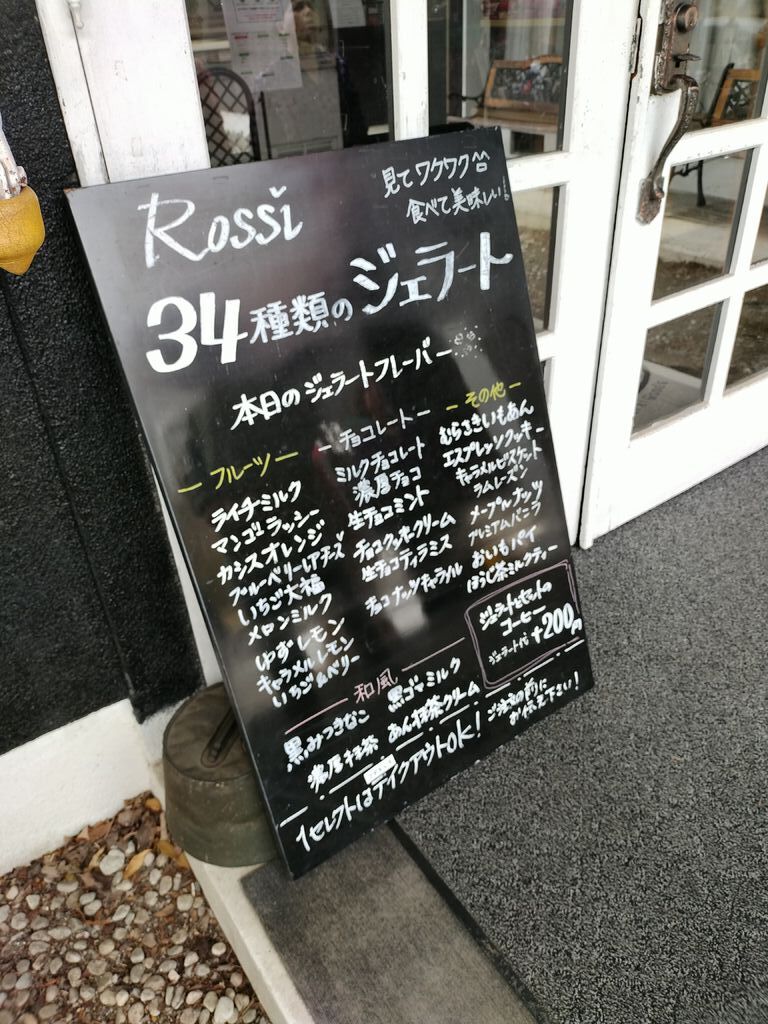 Rossi
見てワクワク
食べて美味しい!
34種類のジェラート
本日のジェラートフレーバー
ーフルーツー
ライチミルク
マンゴーラッシー
カシスオレンジ
ブルーベリーレアチーズ
いちご大福
メロンミルク
ゆずレモン
キャラメルレモン
いちご&ベリー
ーチョコレートー
ミルクチョコレート
濃厚チョコ
生チョコミント
チョコクッキークリーム
生チョコティラミス
チョコナッツキャラメル
ーその他ー
むらさきいもあん
エスプレッソクッキー
キャラメルビスケット
ラムレーズン
メープルナッツ
プレミアムバニラ
おいもパイ
ほうじ茶ミルクティー
ジェラートとセットの
コーヒー
ジェラート代+200円
和風
黒みつきなこ
黒ゴマミルク
濃厚抹茶
あん抹茶クリーム
1セレクトはテイクアウトOK!
ご注文の前に
お伝え下さい!